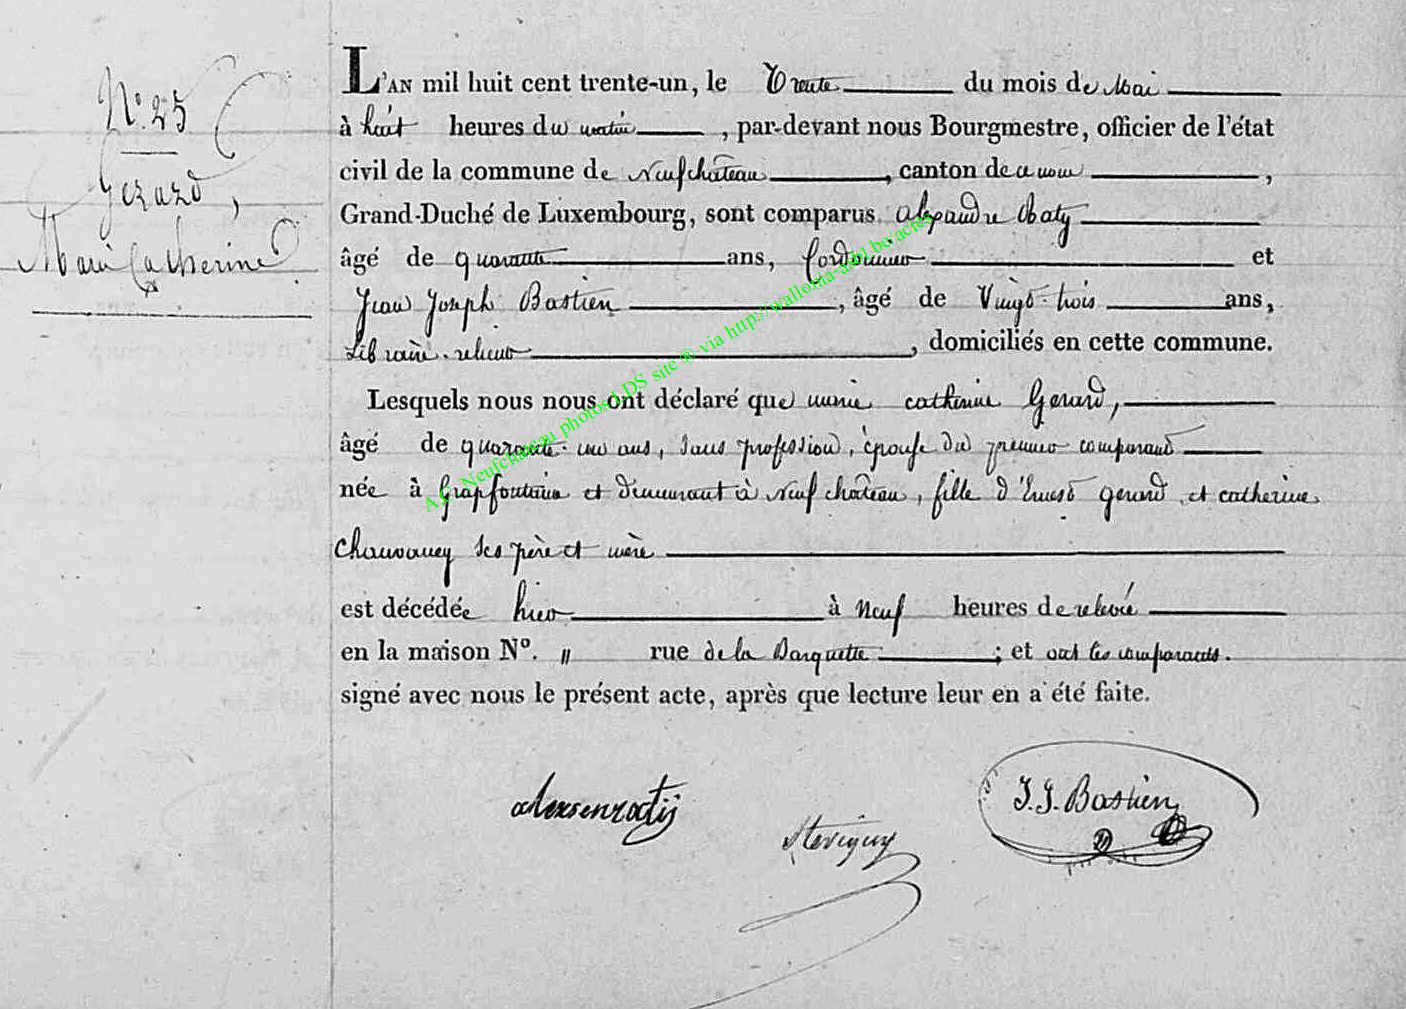 N.° 25
Gerard,
Marie Catherine
L'AN mil huit cent trente-un, le Trente du mois de Mai
à huit heures du matin, par-devant nous Bourgmestre, officier de l'état
civil de la commune de Neufchâteau, canton de ce nom,
Grand-Duché de Luxembourg, sont comparus alexandre
âgé de quarante ans, Cordonnier et
Jean Joseph Bastien, âgé de Vingt-trois ans,
Libraire-relieur, domiciliés en cette commune.
Lesquels nous nous ont déclaré que marie catherine Gerard,
âgé de quarante-un ans, sans profession, épouse du premier comparant
née à Grapfontaine et demeurant à Neufchâteau, fille d'Ernest Gerard et catherine
Chauvancy ses père et mère
est décédée hier à Neuf heures de relevée
en la maison N°. " rue de la Barquette; et ont les comparants.
signé avec nous le présent acte, après que lecture leur en a été faite.
J. J. Bastien
A.C. Neufchateau photos LDS site ® via http://wallonia-asbl.be/actes